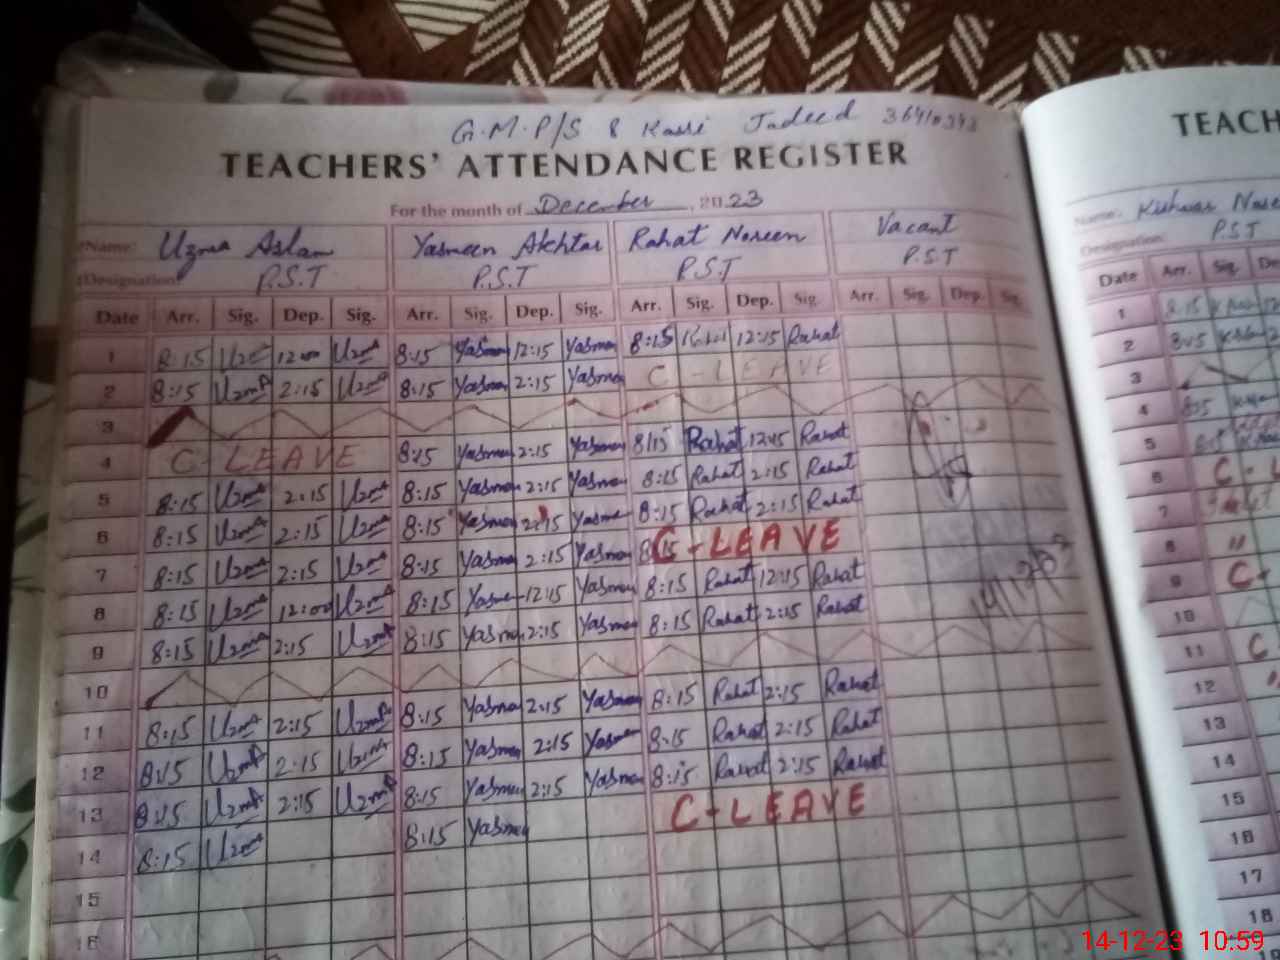 G.M.P/S 8 Kassi Jadeed 36410393
TEACHERS' ATTENDANCE REGISTER
For the month of December, 2023
Name: Uzma Aslam Yasmeen Akhtar Rahat Noreen Vacant
Designation: P.S.T P.S.T P.S.T P.S.T
Date Arr. Sig. Dep. Sig. Arr. Sig. Dep. Sig. Arr. Sig. Dep. Sig. Arr. Sig. Dep. Sig.
1 8:15 Uzma 12:00 Uzma 8:15 Yasmeen 12:15 Yasmeen 8:15 Rahat 12:15 Rahat
2 8:15 Uzma 2:15 Uzma 8:15 Yasmeen 2:15 Yasmeen C-LEAVE
3
4 C-LEAVE 8:15 Yasmeen 2:15 Yasmeen 8:15 Rahat 12:15 Rahat
5 8:15 Uzma 2:15 Uzma 8:15 Yasmeen 2:15 Yasmeen 8:15 Rahat 2:15 Rahat
6 8:15 Uzma 2:15 Uzma 8:15 Yasmeen 2:15 Yasmeen 8:15 Rahat 2:15 Rahat
7 8:15 Uzma 2:15 Uzma 8:15 Yasmeen 2:15 Yasmeen C-LEAVE
8 8:15 Uzma 12:00 Uzma 8:15 Yasmeen 12:15 Yasmeen 8:15 Rahat 12:15 Rahat
9 8:15 Uzma 2:15 Uzma 8:15 Yasmeen 2:15 Yasmeen 8:15 Rahat 2:15 Rahat
10
11 8:15 Uzma 2:15 Uzma 8:15 Yasmeen 2:15 Yasmeen 8:15 Rahat 2:15 Rahat
12 8:15 Uzma 2:15 Uzma 8:15 Yasmeen 2:15 Yasmeen 8:15 Rahat 2:15 Rahat
13 8:15 Uzma 2:15 Uzma 8:15 Yasmeen 2:15 Yasmeen 8:15 Rahat 2:15 Rahat
14 8:15 Uzma 8:15 Yasmeen C-LEAVE
15
16
TEACH
Name: Kishwar
Designation: P.S.T
Date Arr. Sig.
1 8:15
2 8:15
3
4 8:15
5 8:15
6 C-L
7
8 "
9 C-
10
11 C-
12 "
13
14
15
16
17
18
14-12-23 10:59